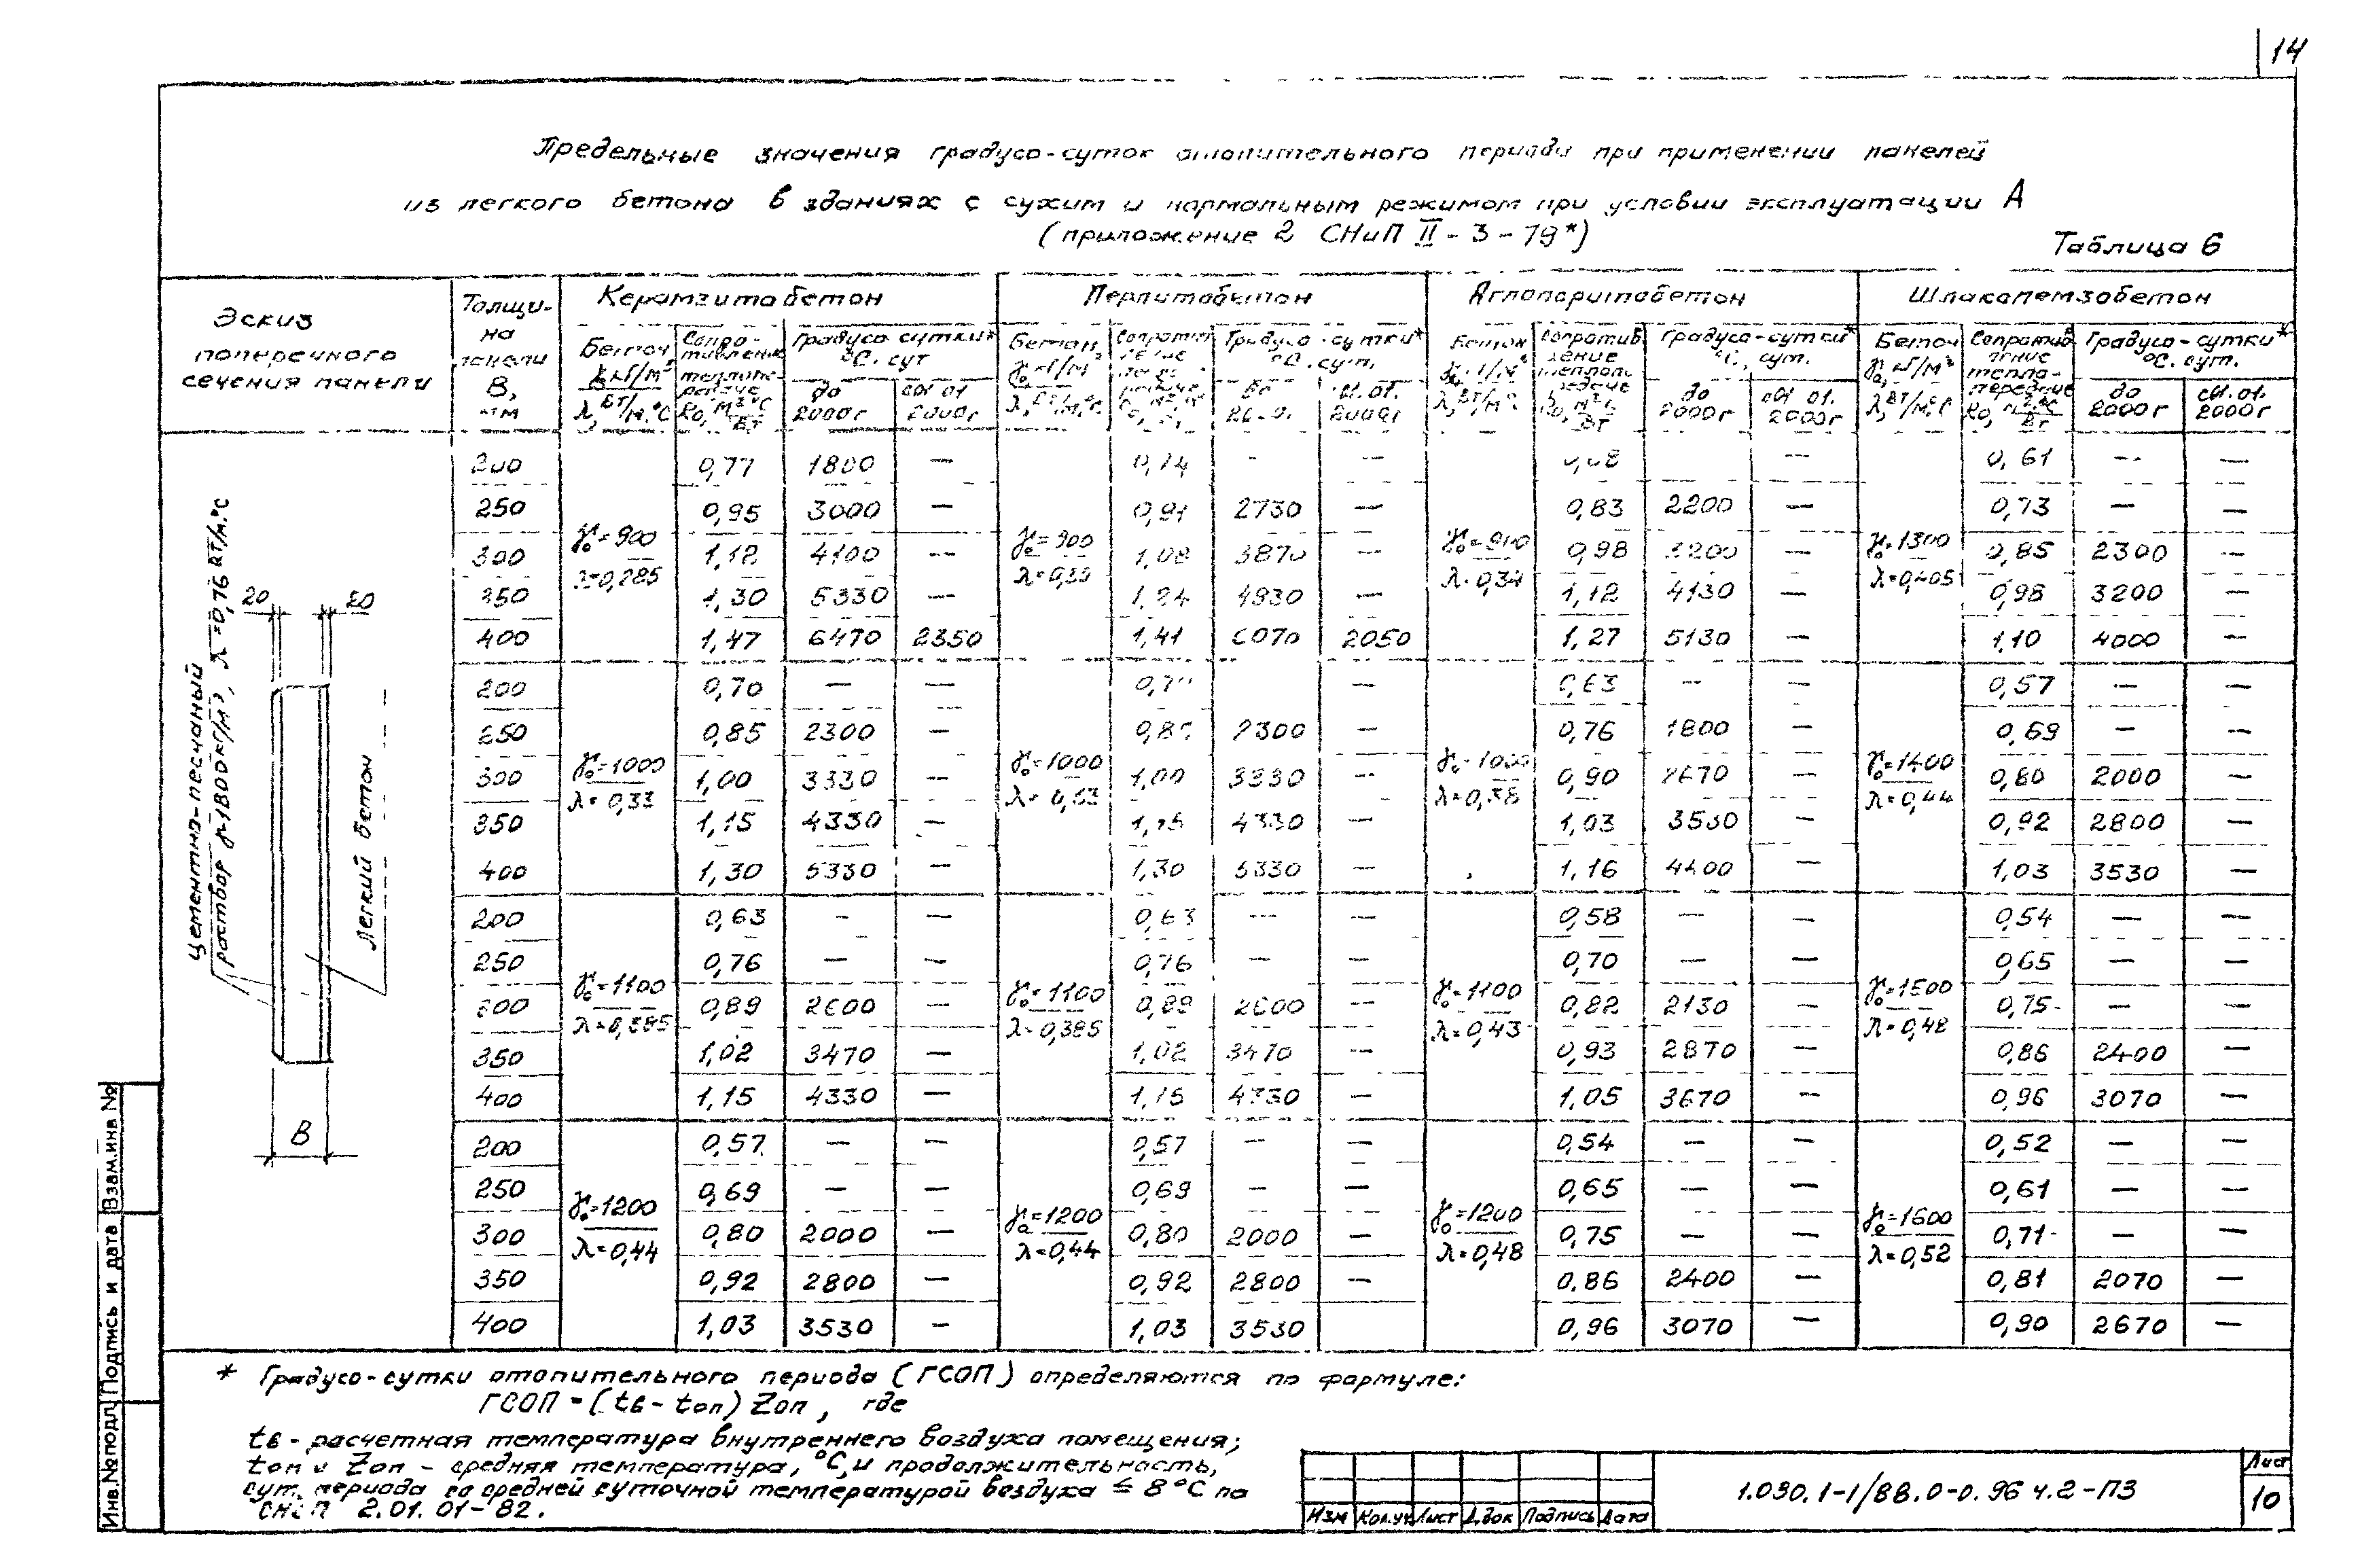 14
Предельные значения градусо-суток отопительного периода при применении панелей
из легкого бетона в зданиях с сухим и нормальным режимом при условии эксплуатации А
(приложение 2 СНиП II-3-79*)
Таблица 6
Эскиз поперечного сечения панели
Толщина панели В, мм
Керамзитобетон
Перлитобетон
Аглопоритобетон
Шлакопемзобетон
Бетон γ₀, кг/м³ λ, Вт/м.°С
Сопротивление теплопередаче R₀, м²°С/Вт
Градусо-сутки* °С.сут
до 2000г
св. от 2000г
Бетон γ₀, кг/м³ λ, Вт/м.°С
Градусо-сутки* °С.сут.
св. от. 2000г
Бетон λ, Вт/м°С
Сопротивление теплопередаче R₀, м²°С/Вт
Градусо-сутки* °С, сут.
до 2000г
св. от. 2000г
Бетон γ₀, кг/м³ λ, Вт/м°С
Сопротивление теплопередаче R₀, м²°С/Вт
Градусо-сутки* °С.сут.
до 2000г
св. от. 2000г
γ₀=900 λ=0,285
γ₀=900
γ₀=900 λ=0,34
γ₀=1300 λ=0,405
200 0,77 1800 — 0,74 - — — 0,61 — —
250 0,95 3000 — 0,91 2730 — 0,83 2200 — 0,73 — —
300 1,12 4100 — 1,08 3870 — 0,98 3200 — 0,85 2300 —
350 1,30 5330 — 1,24 4930 — 1,12 4130 — 0,98 3200 —
400 1,47 6470 2350 1,41 6070 2050 1,27 5130 — 1,10 4000 —
γ₀=1000 λ=0,33
γ₀=1000
γ₀=1000 λ=0,38
γ₀=1400 λ=0,44
200 0,70 — — — 0,63 — — 0,57 — —
250 0,85 2300 — 2300 — 0,76 1800 — 0,69 — —
300 1,00 3330 — 1,00 3330 — 0,90 2670 — 0,80 2000 —
350 1,15 4330 — 1,15 4330 — 1,03 3530 — 0,92 2800 —
400 1,30 5330 — 1,30 5330 — 1,16 4400 — 1,03 3530 —
γ₀=1100 λ=0,385
γ₀=1100 λ=0,385
γ₀=1100 λ=0,43
γ₀=1500 λ=0,48
200 0,63 - — 0,63 — — 0,58 — — 0,54 — —
250 0,76 — — 0,76 — — 0,70 — — 0,65 — —
300 0,89 2600 — 0,89 2600 — 0,82 2130 — 0,75 — —
350 1,02 3470 — 1,02 3470 — 0,93 2870 — 0,86 2400 —
400 1,15 4330 — 1,15 4330 — 1,05 3670 — 0,96 3070 —
γ₀=1200 λ=0,44
γ₀=1200 λ=0,44
γ₀=1200 λ=0,48
γ₀=1600 λ=0,52
200 0,57 — — 0,57 — — 0,54 — — 0,52 — —
250 0,69 — — 0,69 — — 0,65 — — 0,61 — —
300 0,80 2000 — 0,80 2000 — 0,75 — — 0,71 — —
350 0,92 2800 — 0,92 2800 — 0,86 2400 — 0,81 2070 —
400 1,03 3530 — 1,03 3530 0,96 3070 — 0,90 2670 —
Цементно-песчаный
раствор γ=1800кг/м³, λ=0,76 Вт/м.°С
20
20
Легкий бетон
В
* Градусо-сутки отопительного периода (ГСОП) определяются по формуле:
ГСОП = (tв - tоп) Zоп, где
tв - расчетная температура внутреннего воздуха помещения;
tоп и Zоп - средняя температура, °С, и продолжительность,
сут. периода со средней суточной температурой воздуха ≤ 8°С по
СНиП 2.01.01-82.
Взам.инв №
Подпись и дата
Инв.№подл
Изм Кол.уч Лист №док Подпись Дата
1.030.1-1/88.0-0.96 ч.2-ПЗ
Лист
10